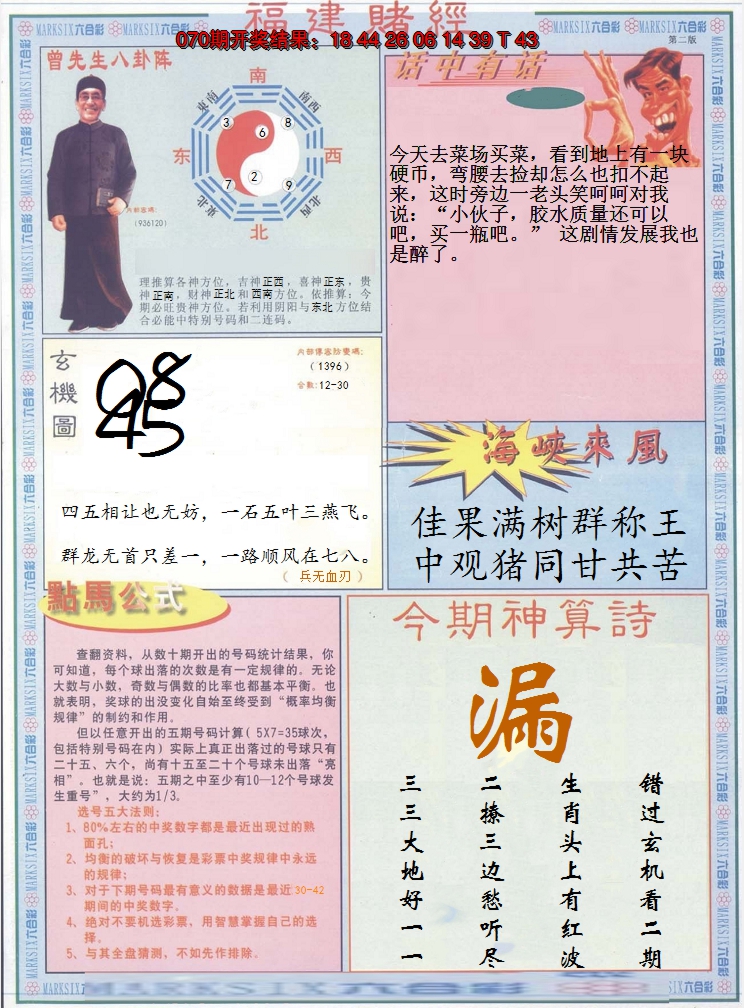 福建賭經
070期开奖结果：18 44 26 06 14 39 T 43
第二版
MARKSIX六合彩
曾先生八卦阵
南
東南
南西
3
8
6
东
西
2
7
9
東北
北西
北
內部密碼:
(936120)
理推算各神方位，吉神正西，喜神正东，贵
神正南，财神正北和西南方位。依推算：今
期必旺贵神方位。若利用阴阳与东北方位结
合必能中特别号码和二连码。
话中有话
今天去菜场买菜，看到地上有一块
硬币，弯腰去捡却怎么也扣不起
来，这时旁边一老头笑呵呵对我
说：“小伙子，胶水质量还可以
吧，买一瓶吧。” 这剧情发展我也
是醉了。
玄機圖
內部傳密險碼:
(1396)
合数:12-30
四五相让也无妨，一石五叶三燕飞。
群龙无首只差一，一路顺风在七八。
（ 兵无血刃 ）
海峽來風
佳果满树群称王
中观猪同甘共苦
點馬公式
查翻资料，从数十期开出的号码统计结果，你
可知道，每个球出落的次数是有一定规律的。无论
大数与小数，奇数与偶数的比率也都基本平衡。也
就表明，奖球的出没变化自始至终受到“概率均衡
规律”的制约和作用。
但以任意开出的五期号码计算( 5X7=35球次，
包括特别号码在内)实际上真正出落过的号球只有
二十五、六个，尚有十五至二十个号球未出落“亮
相”。也就是说：五期之中至少有10—12个号球发
生重号”，大约为1/3。
选号五大法则：
1、80%左右的中奖数字都是最近出现过的熟
面孔；
2、均衡的破坏与恢复是彩票中奖规律中永远
的规律；
3、对于下期号码最有意义的数据是最近30-42
期间的中奖数字。
4、绝对不要机选彩票，用智慧掌握自己的选
择。
5、与其全盘猜测，不如先作排除。
今期神算詩
漏
错过玄机看二期
生肖头上有红波
二撩三边愁听尽
三三大地好一一